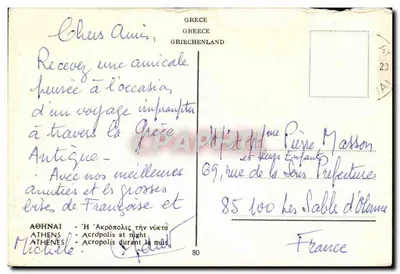 GRECE
GREECE
GRIECHENLAND
Chers Amis,
Recevez une amicale
pensée à l'occasion
d'un voyage impromptu
à travers la Grèce
Antique –
Avec nos meilleures
amitiés et les grosses
bises de Françoise et
Michèle.
ΑΘΗΝΑΙ - Ἡ Ἀκρόπολις τὴν νύκτα
ATHENS - Acropolis at night
ATHENES - Acropolis durant la nuit
80
Mr et Mme Pierre Masson
et leurs Enfants
69, rue de la Sous-Préfecture
85100 Les Sable d'Olonne
France
23